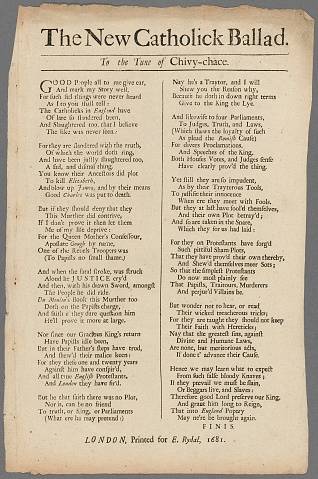 The New Catholick Ballad.
To the Tune of Chivy-chace.
GOOD People all to me give ear,
And mark my Story well,
For such sad things were never heard
As I to you shall tell:
The Catholicks in England have
Of late so slandered been,
And Slaughtered too, that I believe
The like was never seen.
For they are slandred with the truth,
Of which the world doth ring,
And have been justly slaughtered too,
A sad, and dismal thing.
You know their Ancestors did plot
To kill Elizabeth,
And blow up James, and by their means
Good Charles was put to death.
But if they should deny that they
This Murther did contrive,
If I don't prove it then let them
Me of my life deprive:
For the Queen Mother's Confessour,
Apostate Gough by name,
One of the Rebels Troopers was
(To Papists no small shame.)
And when the fatal stroke, was struck
Aloud he JUSTICE cry'd
And then, with his down Sword, amongst
The People he did ride.
Du Moulin's Book this Murther too
Doth on the Papists charge,
And saith if they dare question him
He'll prove it more at large.
Nor since our Gracious King's return
Have Papists idle been,
But in their Father's steps have trod,
And shew'd their malice keen:
For they these one and twenty years
Against him have conspir'd,
And all true English Protestants,
And London they have fir'd.
But he that saith there was no Plot,
Nor is, can be no friend
To truth, or King, or Parliaments
(What ere he may pretend:)
Nay he's a Traytor, and I will
Shew you the Reason why,
Because he doth in down right terms
Give to the King the Lye.
And likewise to four Parliaments,
To Judges, Truth, and Laws,
(Which shawn the loyalty of such
As plead the Romish Cause)
For divers Proclamations,
And Speeches of the King,
Both Houses Votes, and Judges sense
Have clearly prov'd the thing.
Yet still they are so impudent,
As by their Trayterous Tools,
To passe their innocence
When ere they meet with Fools,
But they at last have fool'd themselves,
And their own Plot betray'd;
And so are taken in the Snare,
Which they for us had laid:
For they on Protestants have forg'd
Such pittiful Sham Plots,
That they have prov'd their own thereby,
And Shew'd themselves meer Sots;
So that the simplest Protestants
Do now most plainly see
That Papists, Traitours, Murderers
And perjur'd Villains be.
But wonder not to hear, or read
Their wicked treacherous tricks;
For they are taught they should not keep
Their Faith with Hereticks;
Nay that the greatest sins, against
Divine and Humane Laws,
Are none, but meritorious acts,
If done t' advance their Cause.
Hence we may learn what to expect
From such false bloody Knaves;
If they prevail we must be slain,
Or Beggars live, and Slaves:
Therefore good Lord preserve our King,
And grant him long to Reign,
That into England Popery
May ne're be brought again.
FINIS.
LONDON, Printed for E. Rydal, 1681.